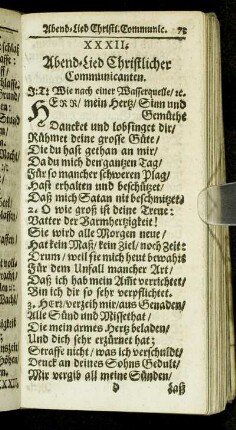 Abend-Lied Christl. Communic. 73
XXXII.
Abend-Lied Christlicher
Communicanten.
J. T. Wie nach einer Wasserquelle/ ꝛc.
HERR/ mein Hertz/ Sinn und
Gemüthe
Dancket und lobsinget dir/
Rühmet deine grosse Güte/
Die du hast gethan an mir/
Da du mich den gantzen Tag/
Für so mancher schweren Plag/
Hast erhalten und beschützet/
Daß mich Satan nit beschmitzet/
2. O wie groß ist deine Treue:
Vatter der Barmhertzigkeit!
Sie wird alle Morgen neue/
Hat kein Maß/ kein Ziel/ noch Zeit:
Drum/ weil sie mich heut bewahrt
Für dem Unfall mancher Art/
Daß ich hab mein Amt verrichtet/
Bin ich dir so sehr verpflichtet.
3. HErr/ verzeih mir/ aus Genaden/
Alle Sünd und Missethat/
Die mein armes Hertz beladen/
Und dich sehr erzürnet hat:
Straffe nicht/ was ich verschuldt/
Denck an deines Sohns Gedult/
Mir vergib all meine Sünden/
D daß